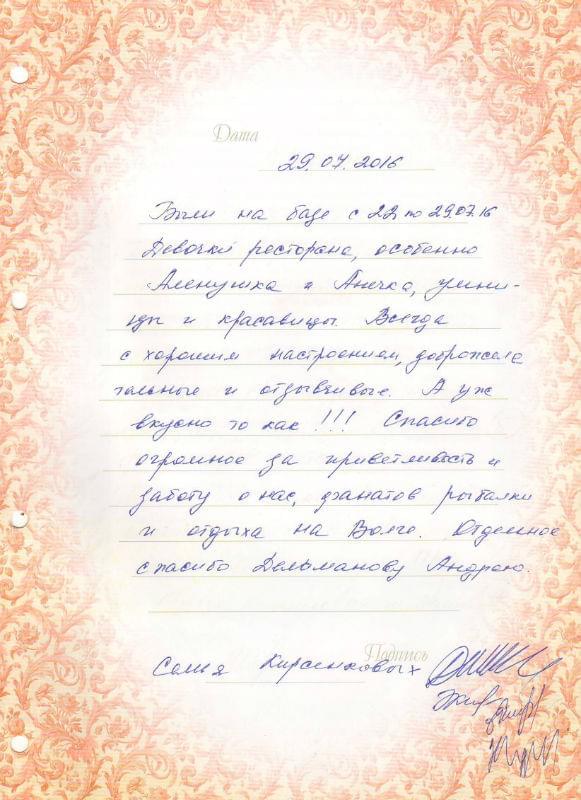 Дата
29.07.2016
Были на базе с 22 по 29.07.16
Девочки ресторана, особенно
Аленушка и Анечка, умни-
цы и красавицы. Всегда
с хорошим настроением, доброжела
тельные и отзывчивые. А уж
вкусно то как !!! Спасибо
огромное за приветливость и
заботу о нас, фанатов рыбалки
и отдыха на Волге. Отдельное
спасибо Дельманову Андрею.
Подпись
Семья Кирсенковых